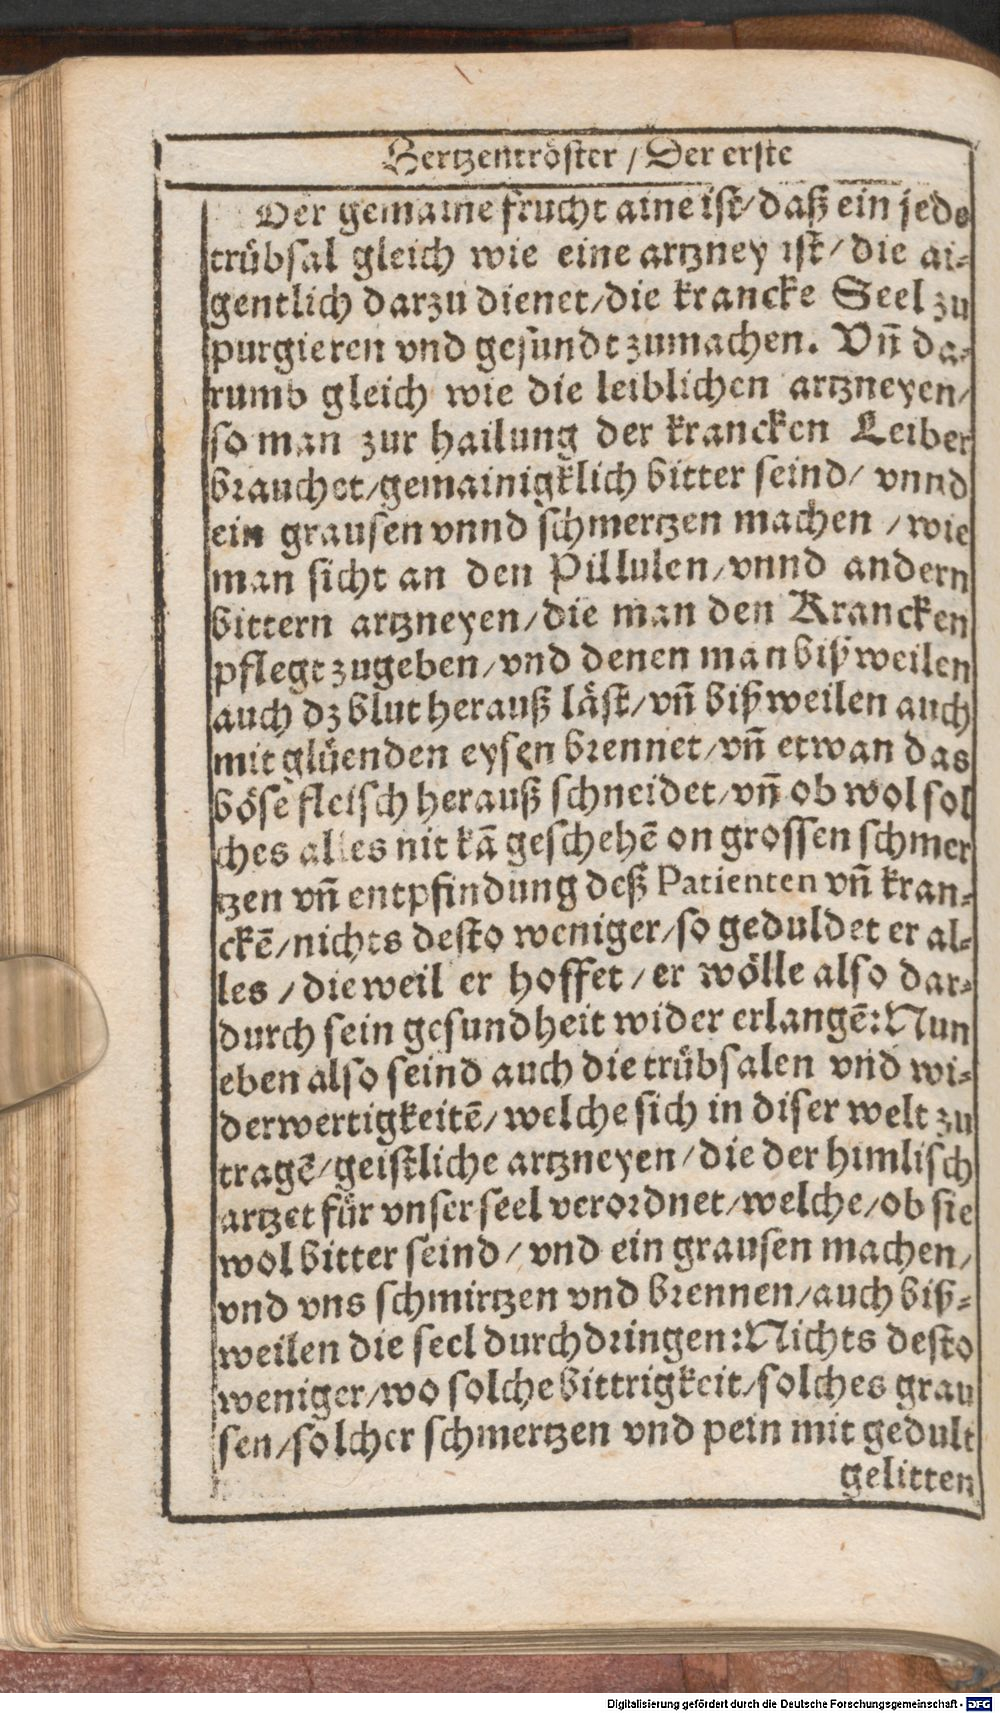 Hertzentröster / Der erste
Der gemaine frucht aine ist/ daß ein jede
trübsal gleich wie eine artzney ist/ die ai-
gentlich darzu dienet/die krancke Seel zu
purgieren vnd gesundt zumachen. Vñ da-
rumb gleich wie die leiblichen artzneyen/
so man zur hailung der krancken Leiber
brauchet/gemainigklich bitter seind/ vnnd
ein grausen vnnd schmertzen machen /wie
man sicht an den Pillulen/vnnd andern
bittern artzneyen/die man den Krancken
pflegt zugeben/vnd denen man bißweilen
auch dz blut herauß läst/vñ bißweilen auch
mit glüenden eysen brennet/vñ etwan das
böse fleisch herauß schneidet/vñ ob wol sol
ches alles nit kã geschehẽ on grossen schmer
tzen vñ entpfindung deß Patienten vñ kran-
ckẽ/nichts desto weniger/so geduldet er al-
les /dieweil er hoffet/er wölle also dar-
durch sein gesundheit wider erlangẽ:Nun
eben also seind auch die trübsalen vnd wi-
derwertigkeitẽ/welche sich in diser welt zu
tragẽ/geistliche artzneyen/die der himlisch
artzet für vnser seel verordnet/welche/ob sie
wol bitter seind/ vnd ein grausen machen/
vnd vns schmirtzen vnd brennen/auch biß-
weilen die seel durchdringen:Nichts desto
weniger/wo solche bittrigkeit/solches grau
sen/solcher schmertzen vnd pein mit gedult
gelitten
Digitalisierung gefördert durch die Deutsche Forschungsgemeinschaft - DFG